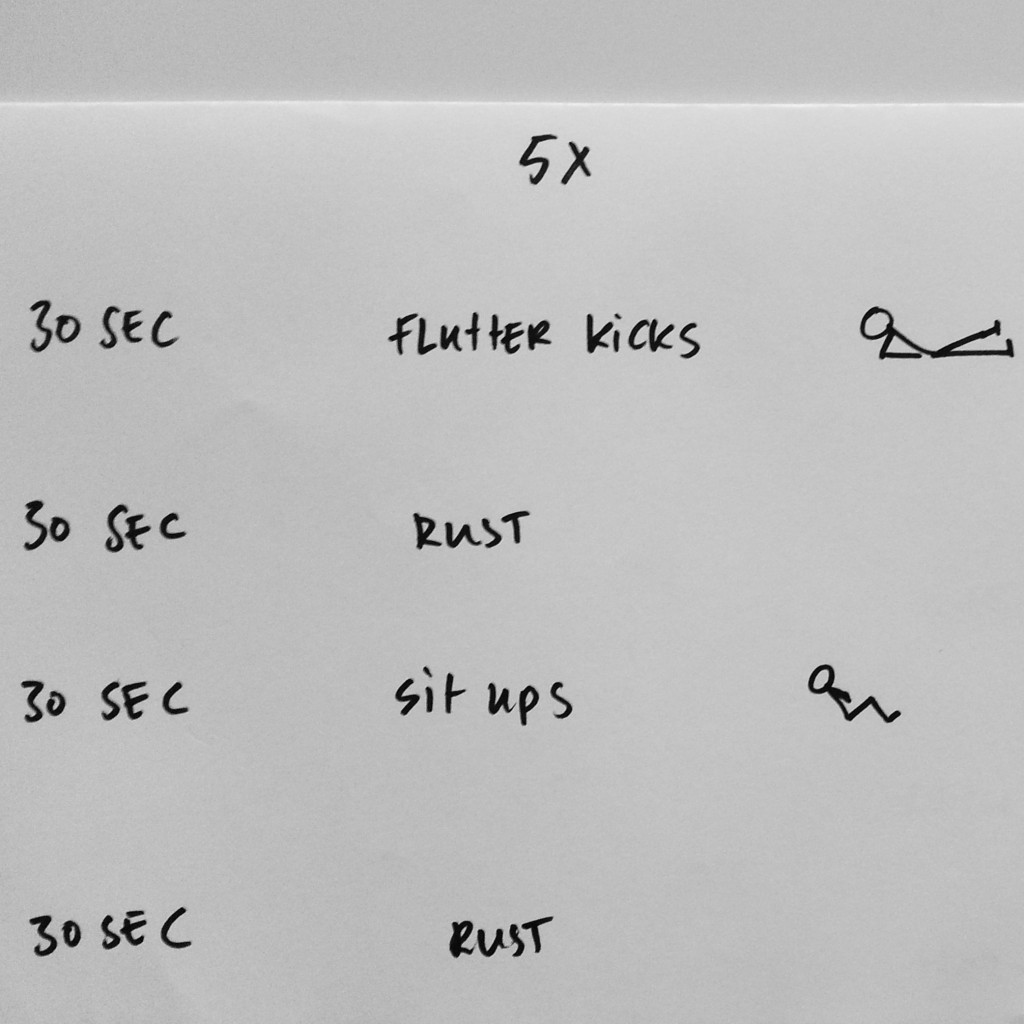 5X
30 SEC FLuttER kicks
30 SEC RUST
30 SEC sit ups
30 SEC RUST